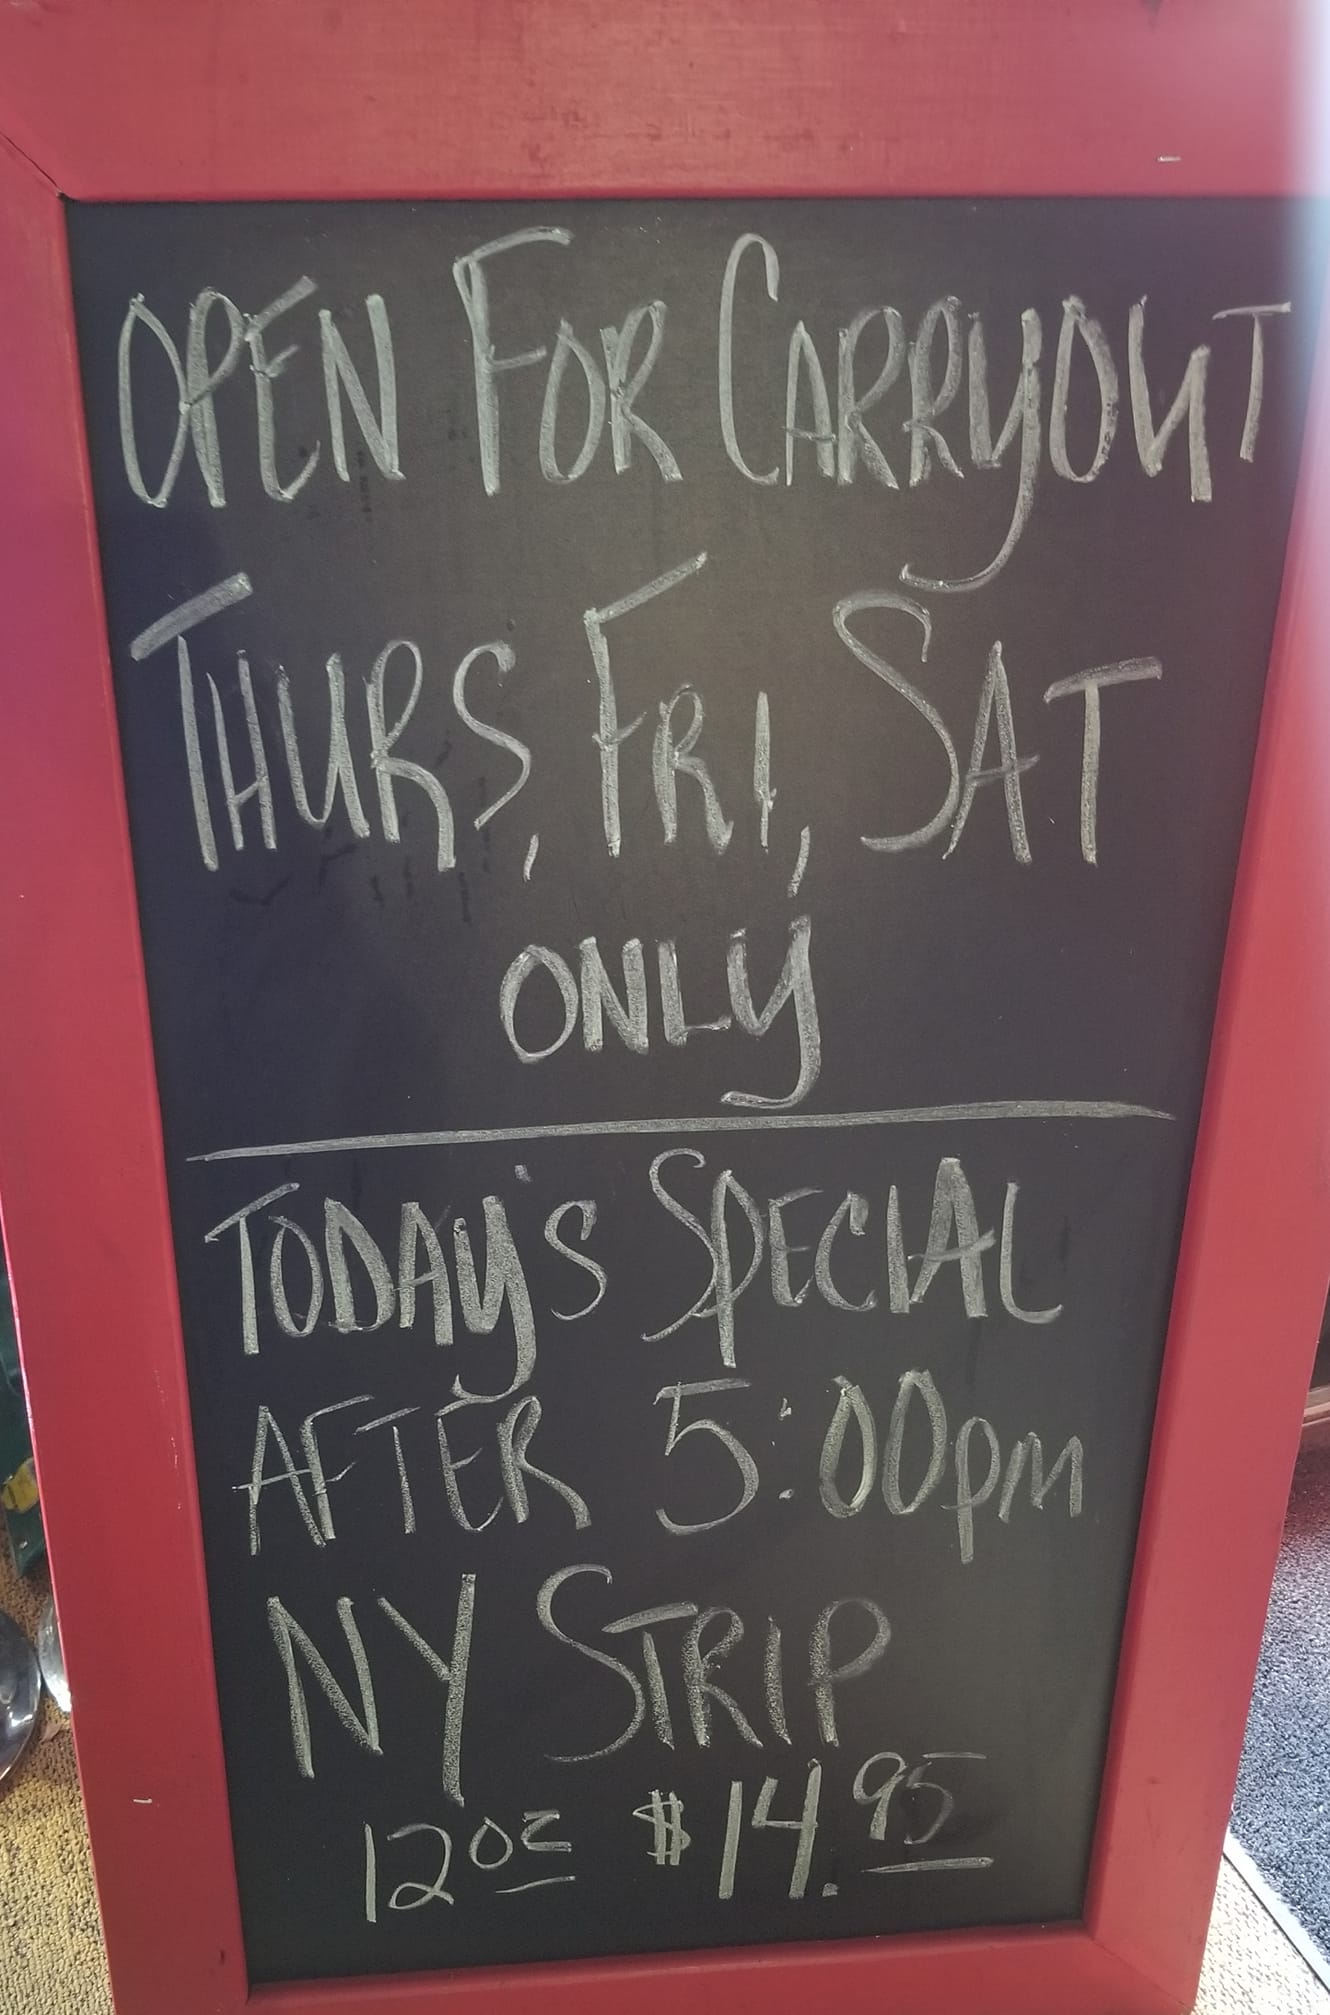 OPEN FOR CARRYOUT
THURS, FRI, SAT
ONLY
TODAY'S SPECIAL
AFTER 5:00pm
NY STRIP
12oz $14.95